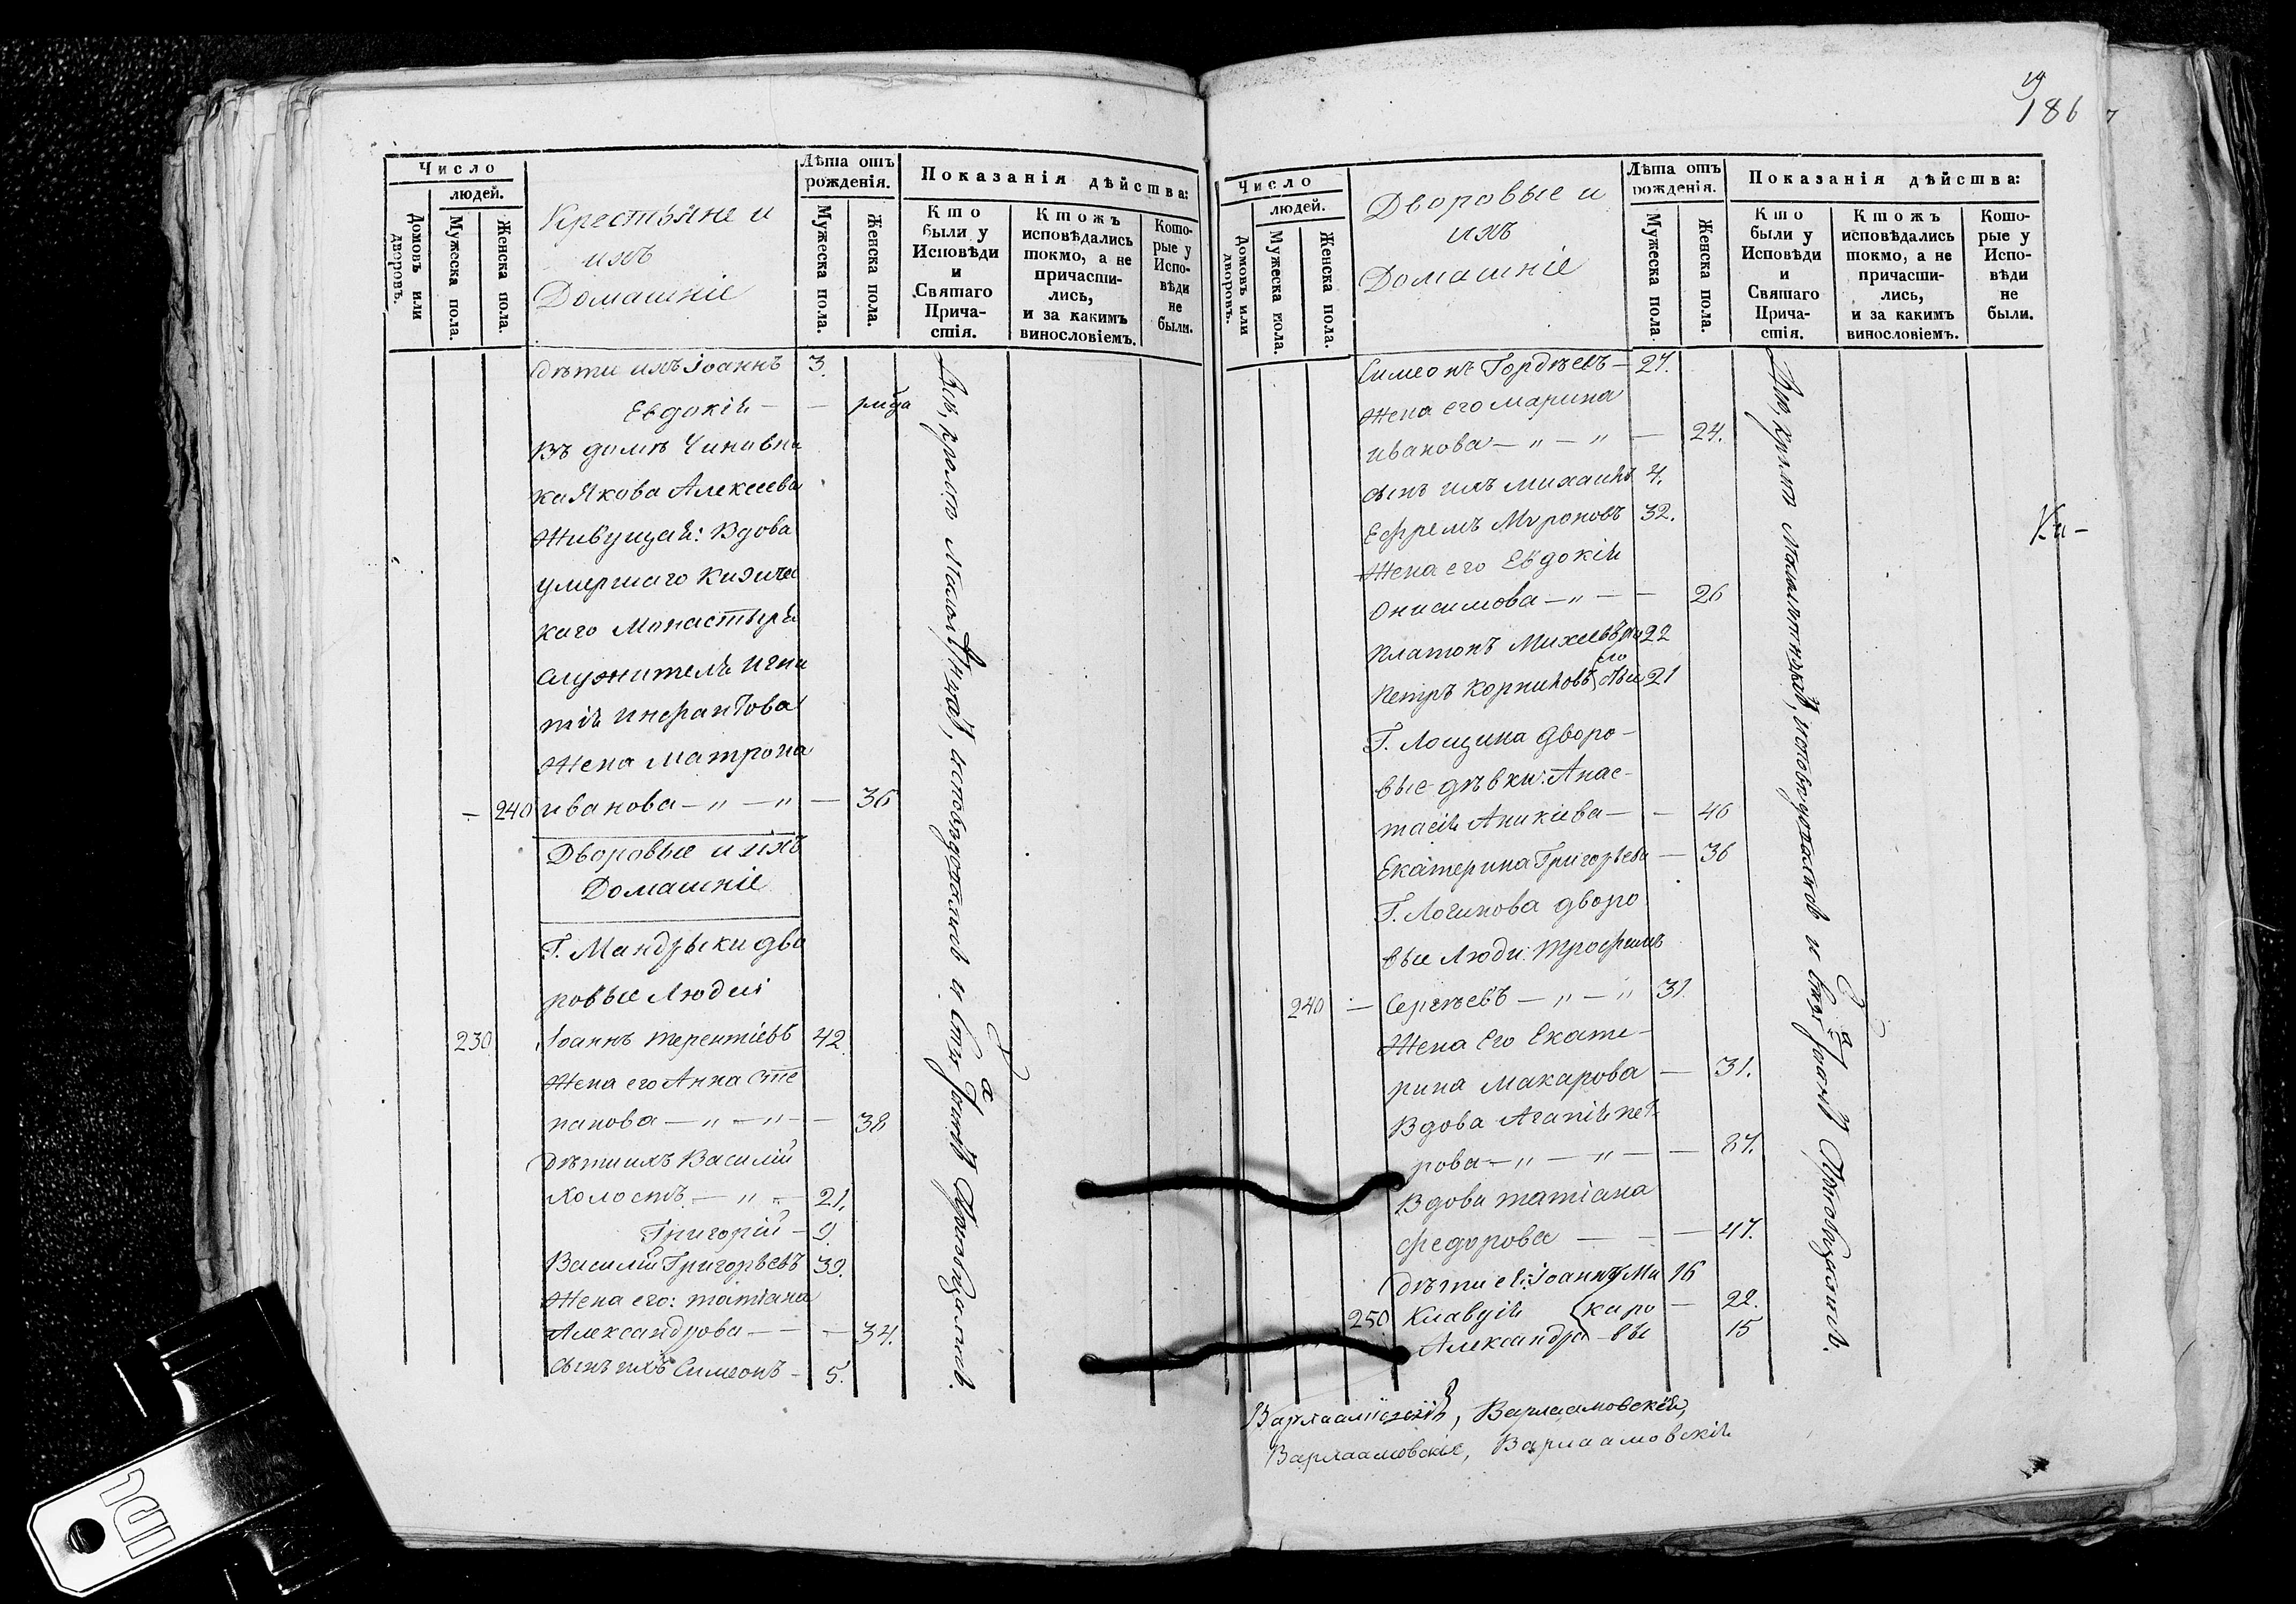 Число
людей.
Домовъ или дворовъ.
Мужеска пола.
Женска пола.
Крестьяне и
ихъ
Домашніе
Лѣта отъ
рожденія.
Мужеска пола.
Женска пола.
Показанія дѣйства:
Кто
были у
Исповѣди
и
Святаго
Прича-
стія.
Ктожъ
исповѣдались
токмо, а не
причасти-
лись,
и за какимъ
винословіемъ.
Кото-
рые у
Испо-
вѣди
не
были.
Дѣти ихъ Іоаннъ 3.
Евдокія — —
Въ домѣ Чиновни
ка Якова Алексеева
Живущая: Вдова
умершаго Кизиче
каго Монастыря
служителя Игна
тія
Жена Матрона
— 240 Иванова — „ — „ — 36
Дворовые и ихъ
Домашніе
Г. Мандрыки дво
ровые Люди:
230 Іоаннъ Терентіевъ 42
Жена его Анна Сте
панова — „ — „ — — 38
Дѣти ихъ Василій
холостъ — „ — 21.
Григорій — 9.
Василій Григорьевъ 39.
Жена его: Татіана
Александрова — — — 34.
Сынъ ихъ Симеонъ — 5.
Всѣ, кромѣ Малолѣтнаѣ, исповѣдовались и Стх Таинъ Пріобщались.
186
Число
людей.
Домовъ или дворовъ.
Мужеска пола.
Женска пола.
Дворовые и
ихъ
Домашніе
Лѣта отъ
рожденія.
Мужеска пола.
Женска пола.
Показанія дѣйства:
Кто
были у
Исповѣди
и
Святаго
Прича-
стія.
Ктожъ
исповѣдались
токмо, а не
причасти-
лись,
и за какимъ
винословіемъ.
Кото-
рые у
Испо-
вѣди
не
были.
Симеонъ Гордѣевъ — 27.
Жена его Марина
Иванова — „ — „ — 24.
Сынъ ихъ Михаилъ 4.
Ефремъ Мѵроновъ 32.
Жена его Евдокія
Онисимова — „ — — 26
Платонъ Михеевъ 22
Петръ Корниловъ 21
Г. Лощина дворо-
вые дѣвки: Анас-
тасія Аникіева — — 46
Екатерина Григорьева — 36
Г. Логинова дворо
вые Люди: Трофимъ
240 — Сергѣевъ — „ — „ 31.
Жена Его Екате-
рина Макарова — 31.
Вдова Агапія Пет
рова — „ — „ — — 87.
Вдова Татіана
Федорова — — — 47.
Дѣти ея: Іоаннъ Ма 16
250 Клавдія каро — 22.
Александра — вы 15
Ки-
Варлаамовскій, Варлаамовскій,
Варлаамовскія, Варлаамовскія